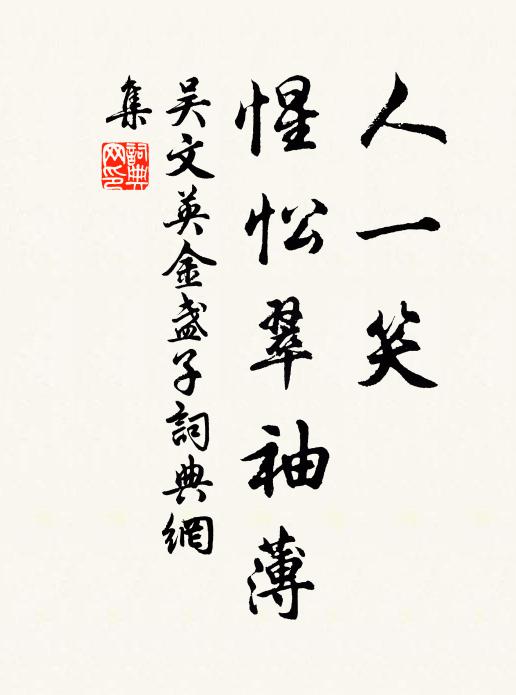 人一笑
惺忪翠袖薄
吴文英金盏子詞典網
集
詞典
网印